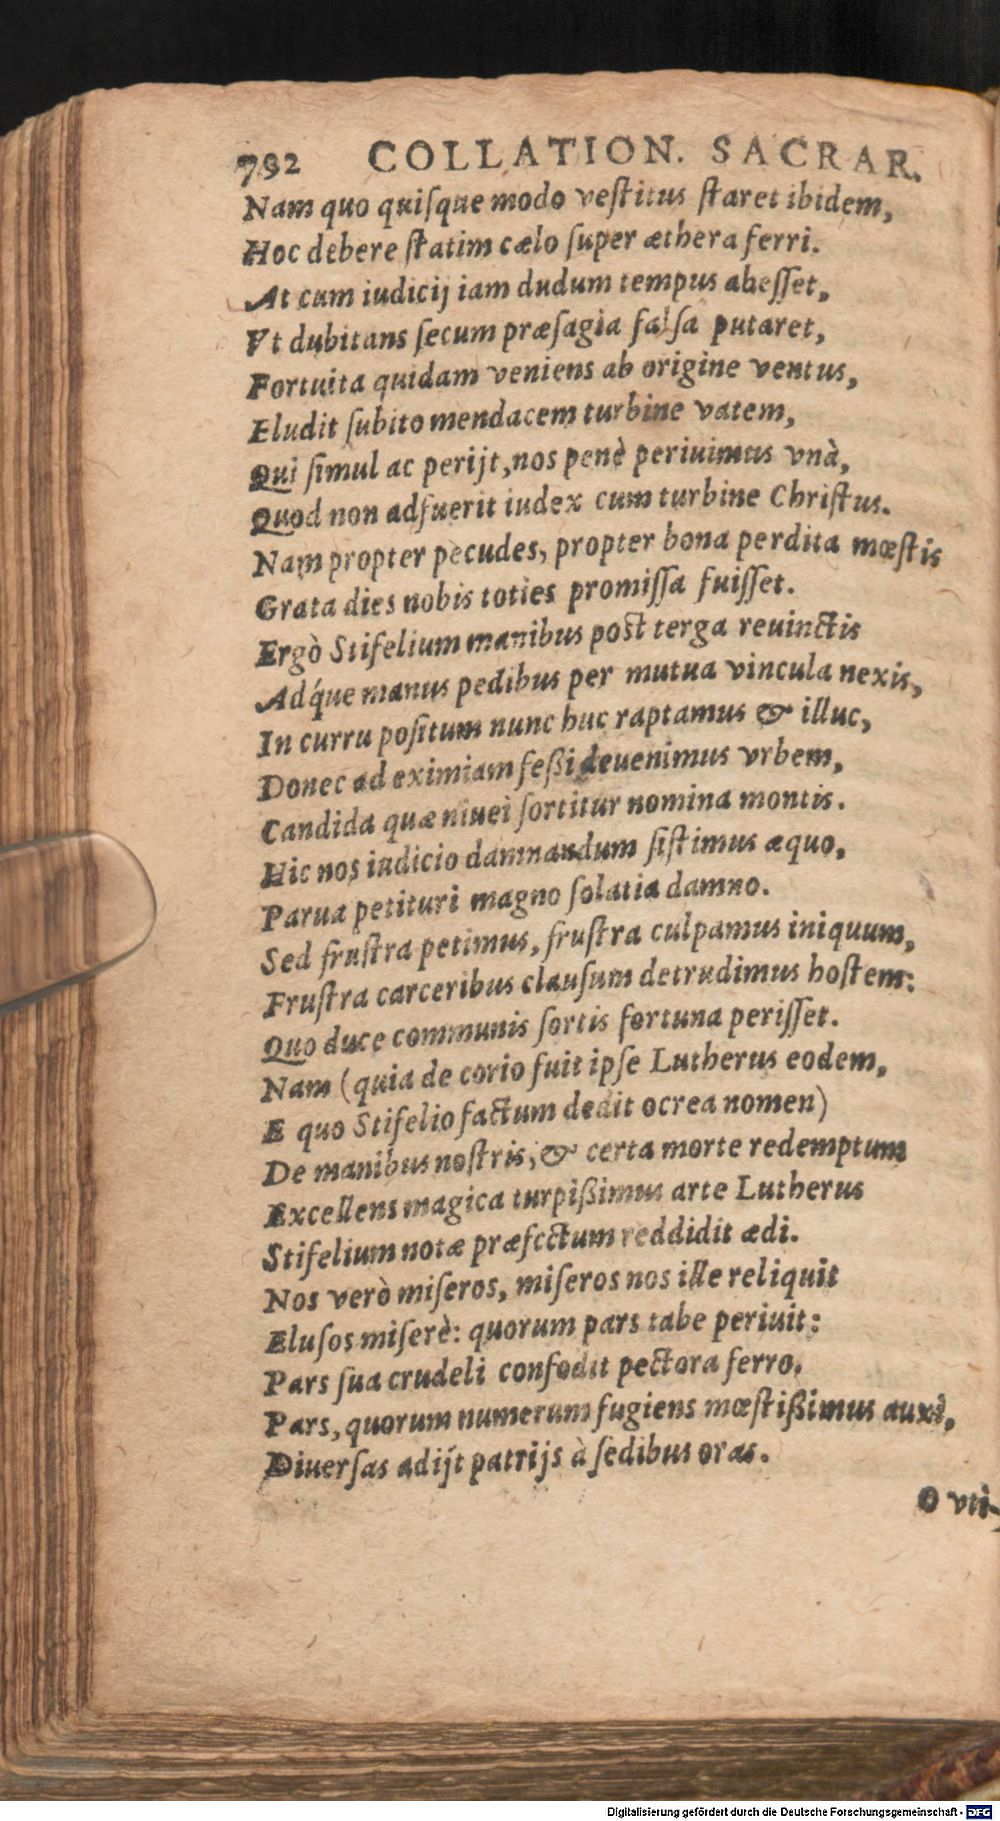 792 COLLATION. SACRAR.
Nam quo quiſque modo veſtitus ſtaret ibidem,
Hoc debere ſtatim cælo ſuper æthera ferri.
At cum iudicij iam dudum tempus abeſſet,
Vt dubitans ſecum præſagia falſa putaret,
Fortuita quidam veniens ab origine ventus,
Eludit ſubito mendacem turbine vatem,
Qui ſimul ac perijt, nos penè periuimus vnà,
Quod non adfuerit iudex cum turbine Chriſtus.
Nam propter pecudes, propter bona perdita mœſtis
Grata dies nobis toties promiſſa fuiſſet.
Ergò Stifelium manibus poſt terga reuinctis
Adq́ue manus pedibus per mutua vincula nexis,
In curru poſitum nunc huc raptamus & illuc,
Donec ad eximiam feßi deuenimus vrbem,
Candida quæ niuei ſortitur nomina montis.
Hic nos iudicio damnandum ſiſtimus æquo,
Parua petituri magno ſolatia damno.
Sed fruſtra petimus, fruſtra culpamus iniquum,
Fruſtra carceribus clauſum detrudimus hoſtem:
Quo duce communis ſortis fortuna periſſet.
Nam (quia de corio fuit ipſe Lutherus eodem,
E quo Stifelio factum dedit ocrea nomen)
De manibus noſtris, & certa morte redemptum
Excellens magica turpißimus arte Lutherus
Stifelium notæ præfectum reddidit ædi.
Nos verò miſeros, miſeros nos ille reliquit
Eluſos miſerè: quorum pars tabe periuit:
Pars ſua crudeli confodit pectora ferro.
Pars, quorum numerum fugiens mœſtißimus auxi,
Diuerſas adijt patrijs à ſedibus oras.
O vti-
Digitalisierung gefördert durch die Deutsche Forschungsgemeinschaft - DFG